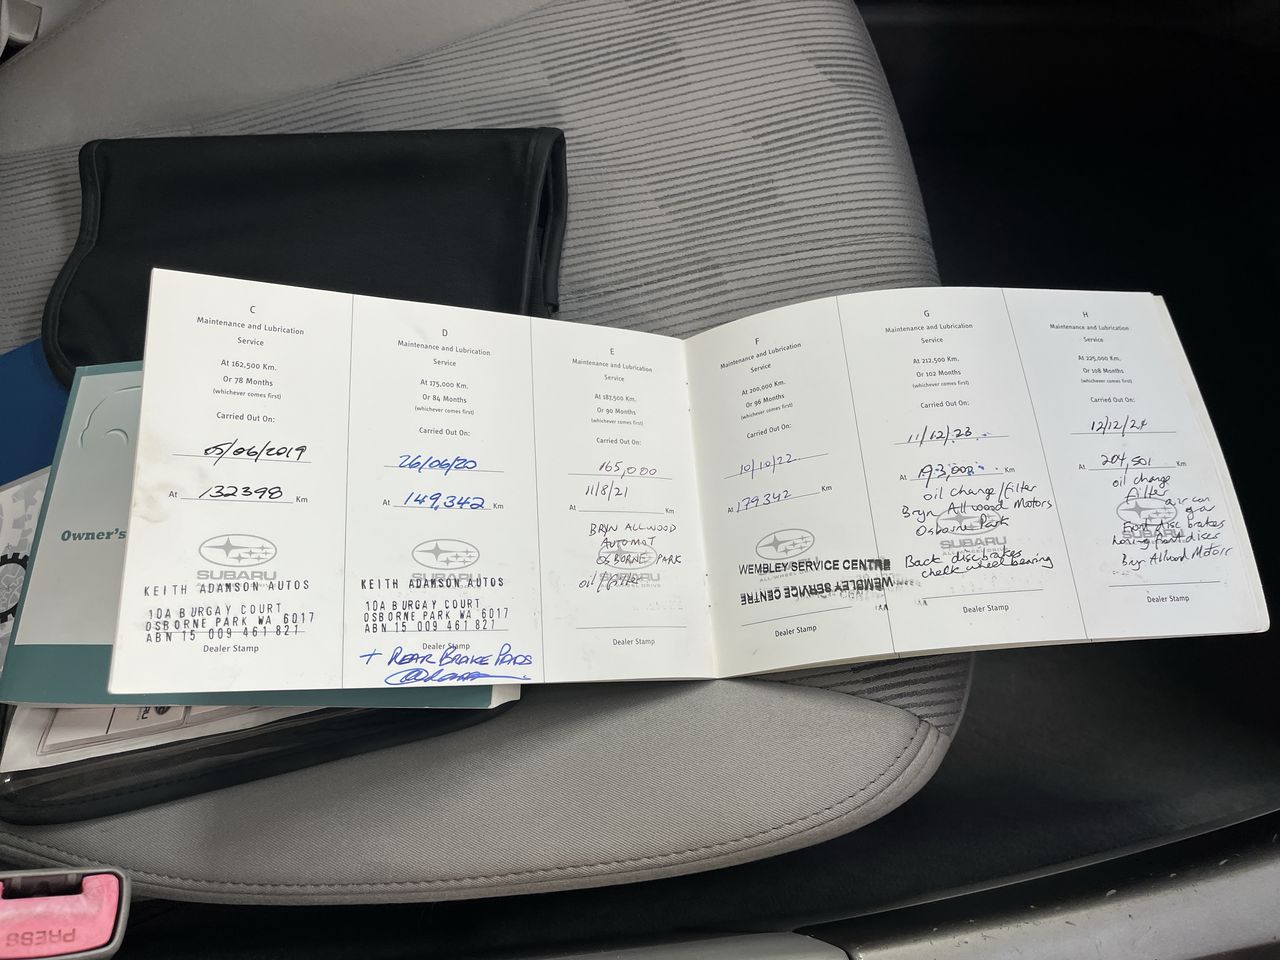 C
Maintenance and Lubrication
Service
At 162,500 Km.
Or 78 Months
(whichever comes first)
Carried Out On:
05/06/2019
At 132398 Km
SUBARU
KEITH ADAMSON AUTOS
10A BURGAY COURT
OSBORNE PARK WA 6017
ABN 15 009 461 821
Dealer Stamp
D
Maintenance and Lubrication
Service
At 175,000 Km.
Or 84 Months
(whichever comes first)
Carried Out On:
26/06/20
At 149,342 Km
SUBARU
KEITH ADAMSON AUTOS
10A BURGAY COURT
OSBORNE PARK WA 6017
ABN 15 009 461 827
Dealer Stamp
+ REAR BRAKE PADS
E
Maintenance and Lubrication
Service
At 187,500 Km.
Or 90 Months
(whichever comes first)
Carried Out On:
165,000
11/8/21
At Km
BRYN ALLWOOD
AUTOMOT
OSBORNE PARK
SUBARU
oil/filter
Dealer Stamp
F
Maintenance and Lubrication
Service
At 200,000 Km.
Or 96 Months
(whichever comes first)
Carried Out On:
10/10/22
At 179342 Km
WEMBLEY SERVICE CENTRE
WEMBLEY SERVICE CENTRE
Dealer Stamp
G
Maintenance and Lubrication
Service
At 212,500 Km.
Or 102 Months
(whichever comes first)
Carried Out On:
11/12/23
At 193,002 Km
oil change/filter
Bryn Allwood Motors
Osborne Park
SUBARU
Back disc brakes
check wheel bearing
Dealer Stamp
H
Maintenance and Lubrication
Service
At 225,000 Km.
Or 108 Months
(whichever comes first)
Carried Out On:
12/12/24
At 204,501 Km
oil change
filter
air con
Front disc brakes
front discs
Bryn Allwood Motors
Dealer Stamp
Owner's
PRESS